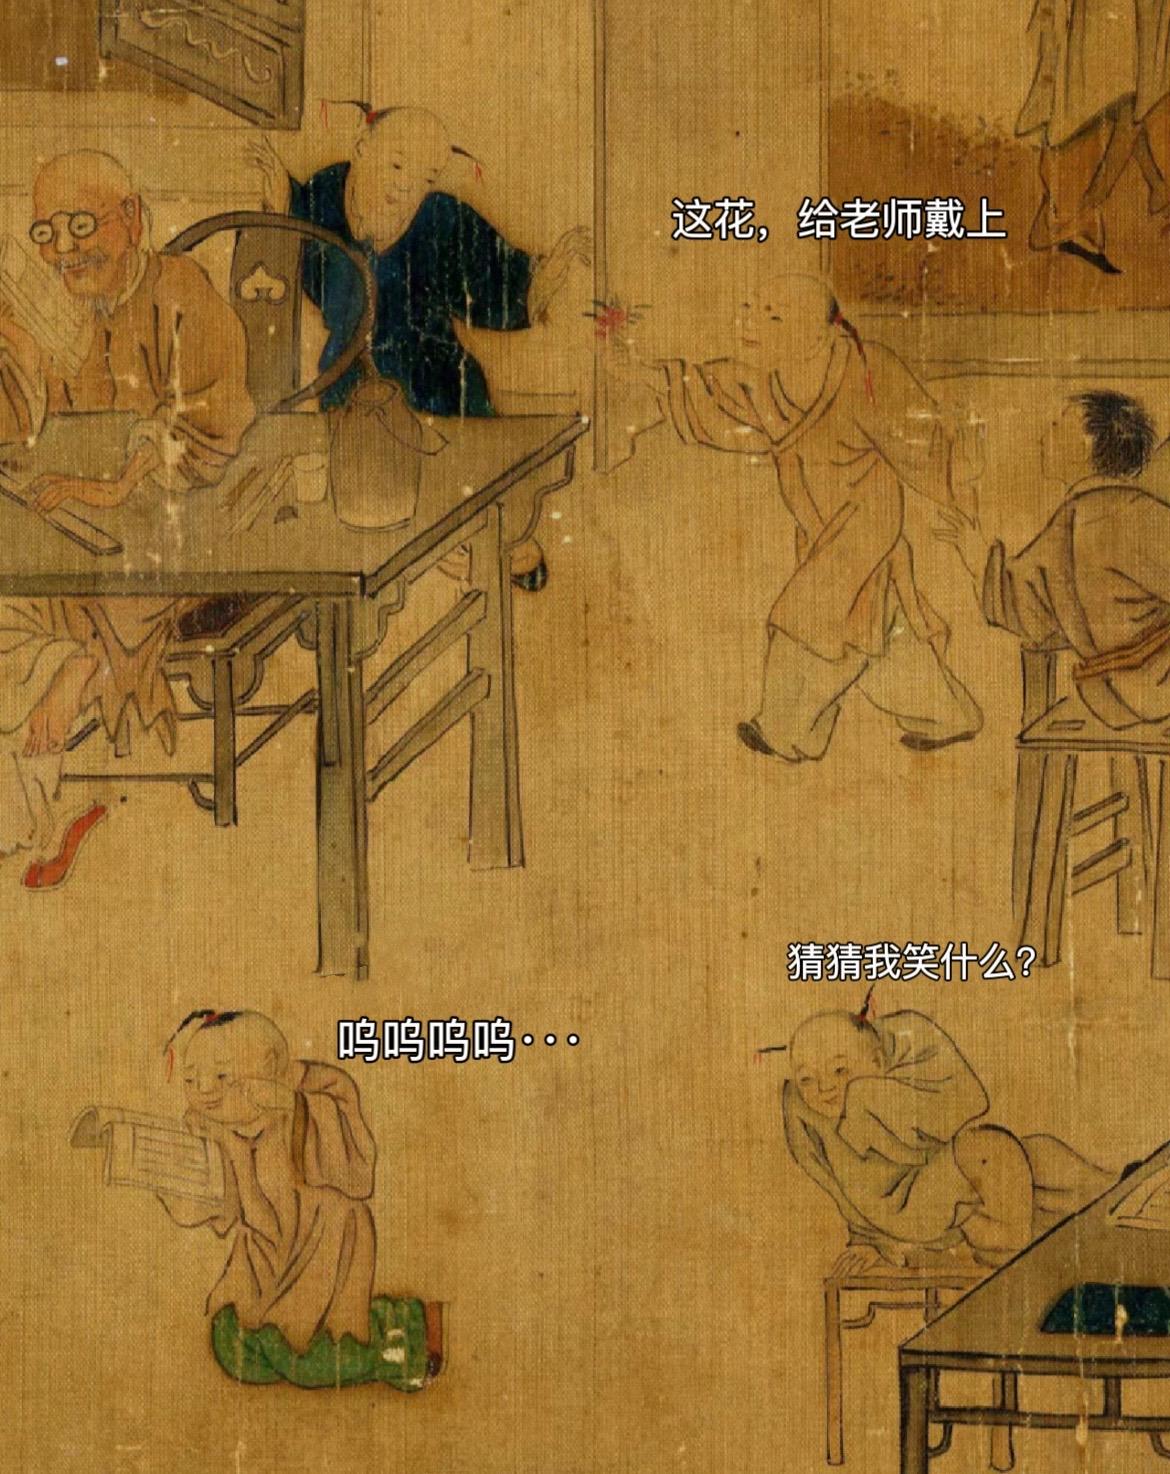 这花，给老师戴上
猜猜我笑什么？
呜呜呜呜···